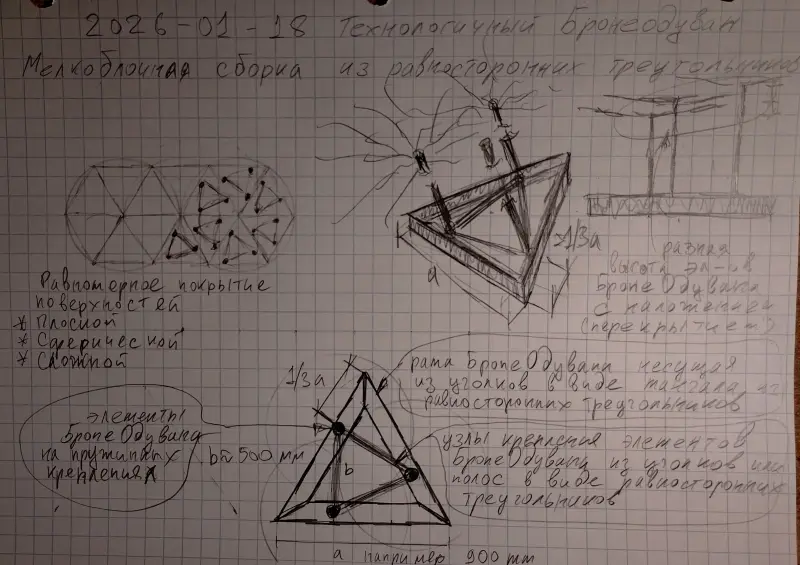 2026-01-18 Технологичный Бронеодуван
Мелкоблочная сборка из равносторонних треугольников
≈1/3a
a
разная
высота эл-ов
БронеОдувана
с наложением
(перекрытием)
Равномерное покрытие
поверхностей
* Плоской
* Сферической
* Сложной
1/3a
рама БронеОдувана несущая
из уголков в виде мангала из
равносторонних треугольников
элементы
БронеОдувана
на пружинах
крепления
b≈500 мм
b
узлы крепления элементов
БронеОдувана из уголков или
полос в виде равносторонних
треугольников
a например 900 mm